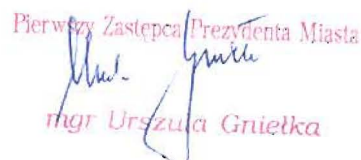 Pierwszy Zastępca Prezydenta Miasta
mgr Urszula Gniełka